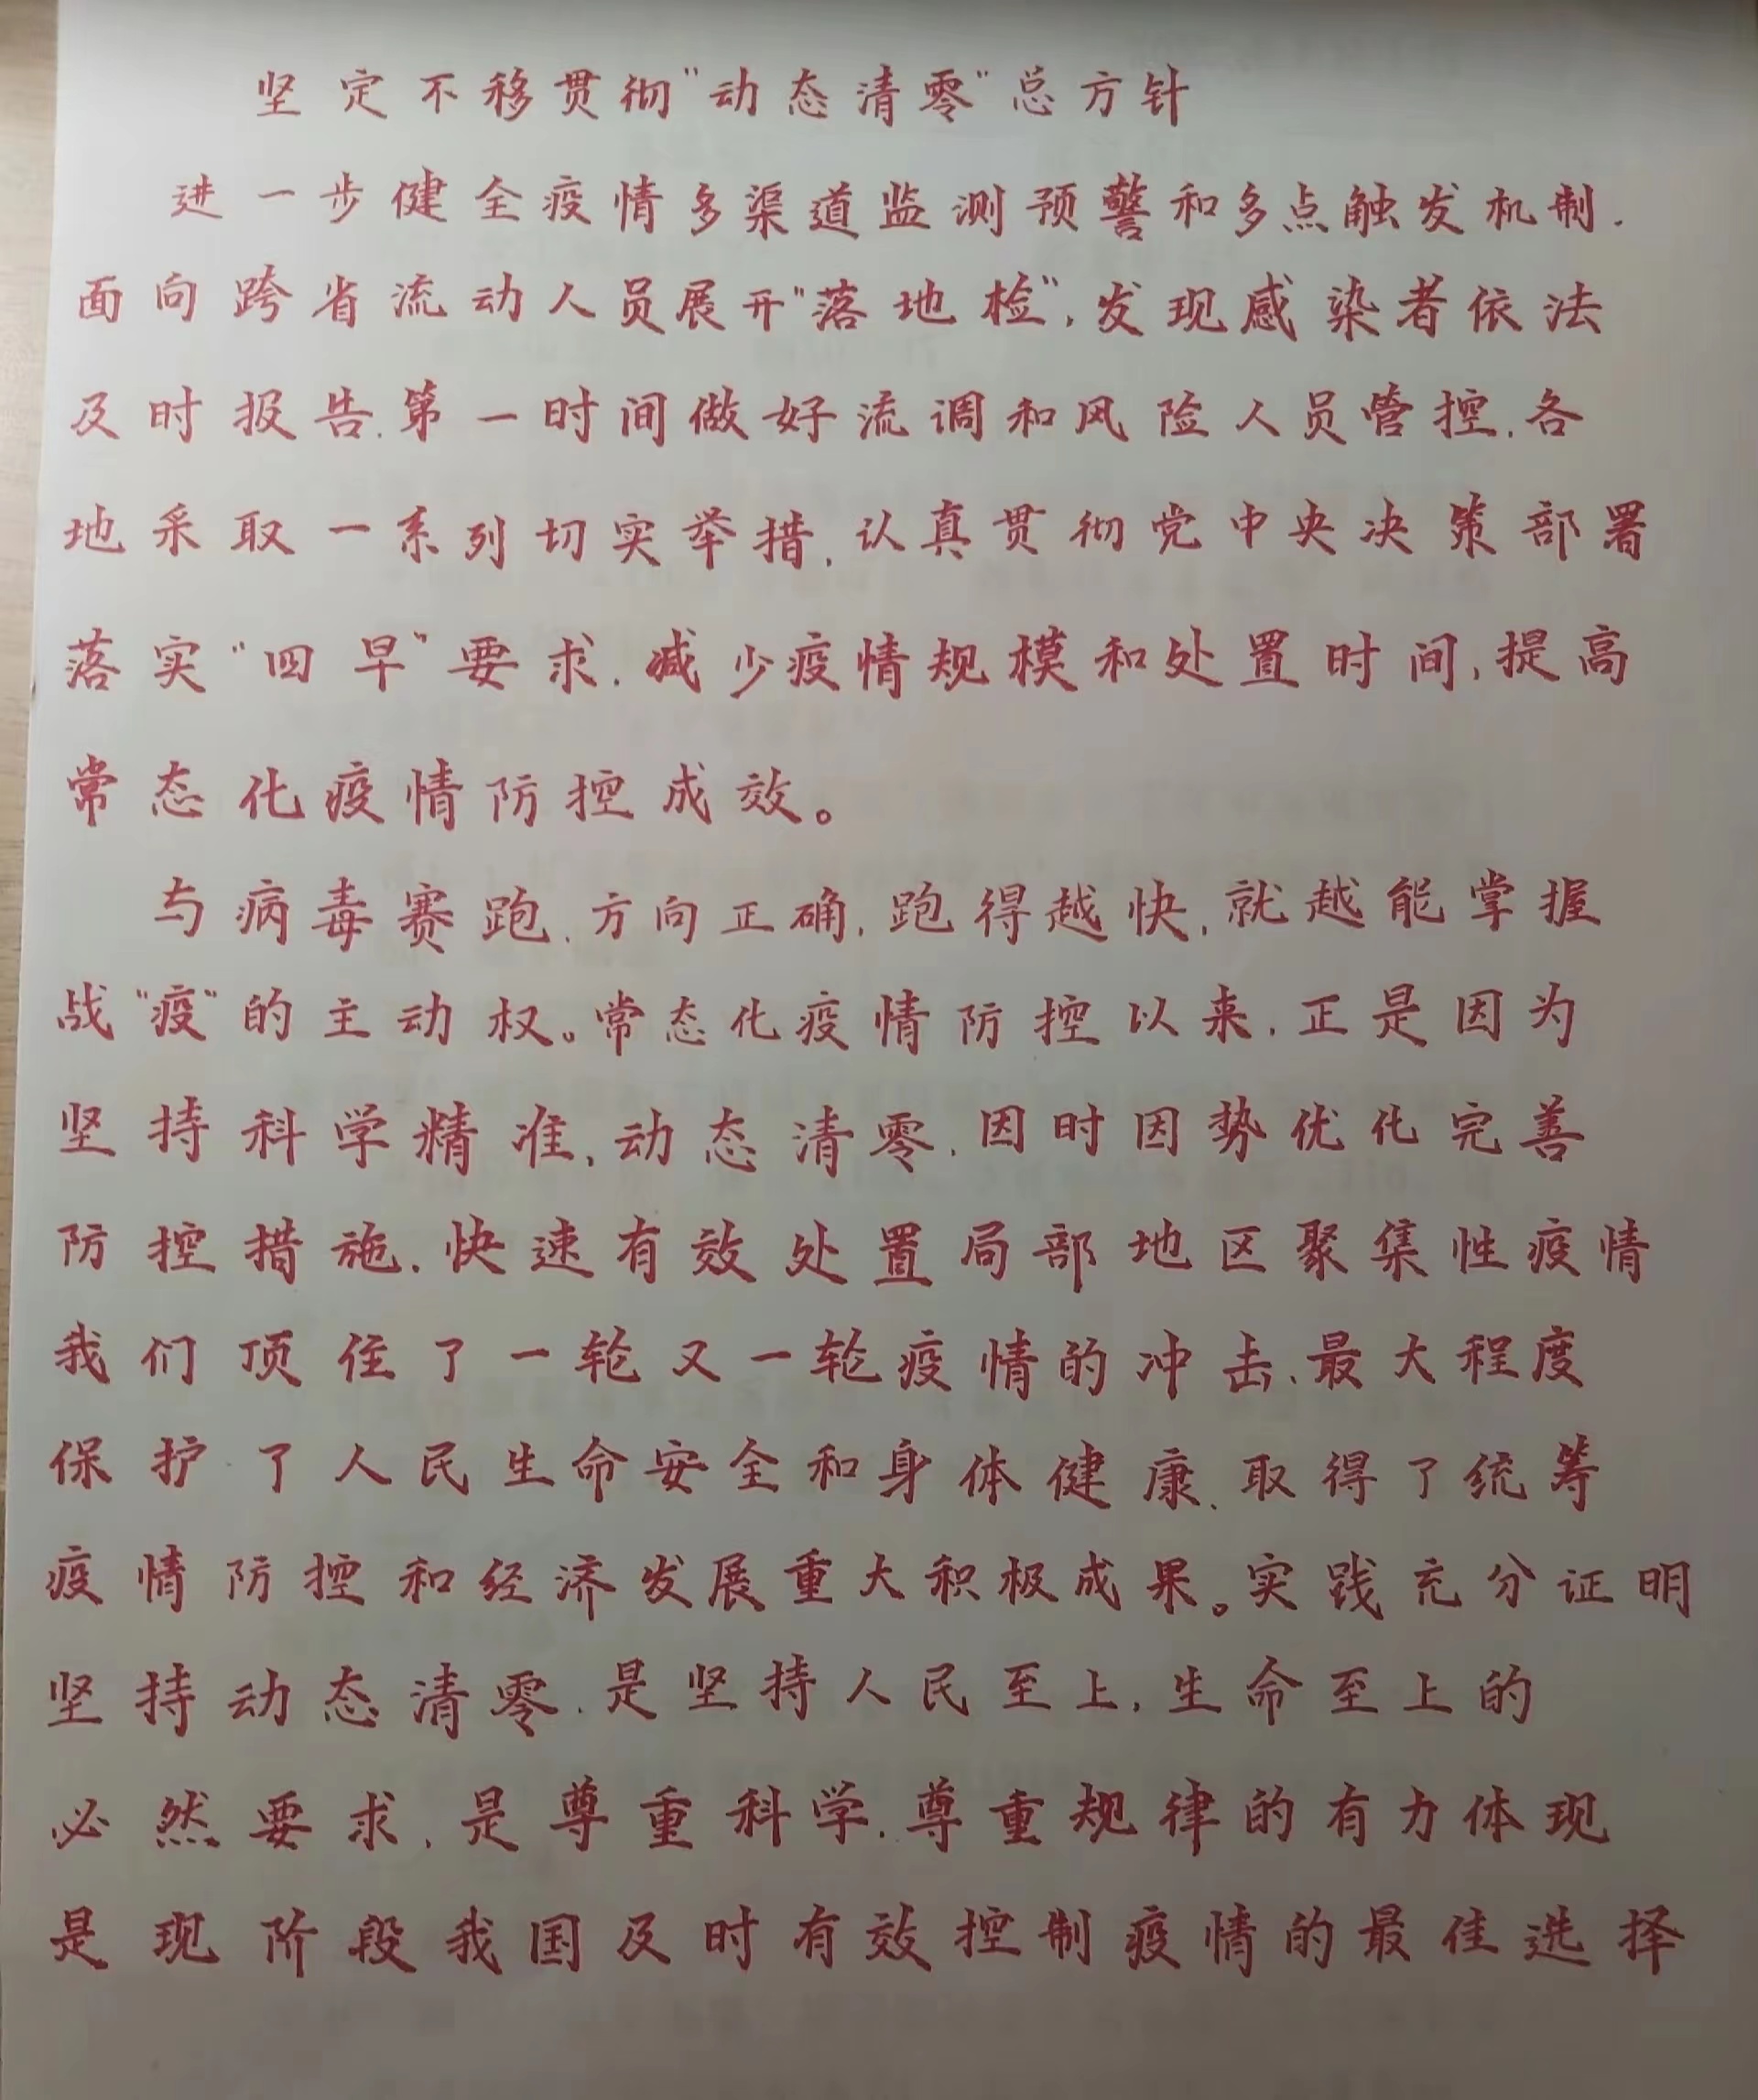 坚定不移贯彻“动态清零”总方针
进一步健全疫情多渠道监测预警和多点触发机制.
面向跨省流动人员展开“落地检”,发现感染者依法
及时报告.第一时间做好流调和风险人员管控.各
地采取一系列切实举措,认真贯彻党中央决策部署
落实“四早”要求.减少疫情规模和处置时间,提高
常态化疫情防控成效。
与病毒赛跑.方向正确,跑得越快,就越能掌握
战“疫”的主动权。常态化疫情防控以来.正是因为
坚持科学精准、动态清零.因时因势优化完善
防控措施.快速有效处置局部地区聚集性疫情
我们顶住了一轮又一轮疫情的冲击.最大程度
保护了人民生命安全和身体健康.取得了统筹
疫情防控和经济发展重大积极成果。实践充分证明
坚持动态清零.是坚持人民至上,生命至上的
必然要求,是尊重科学.尊重规律的有力体现
是现阶段我国及时有效控制疫情的最佳选择